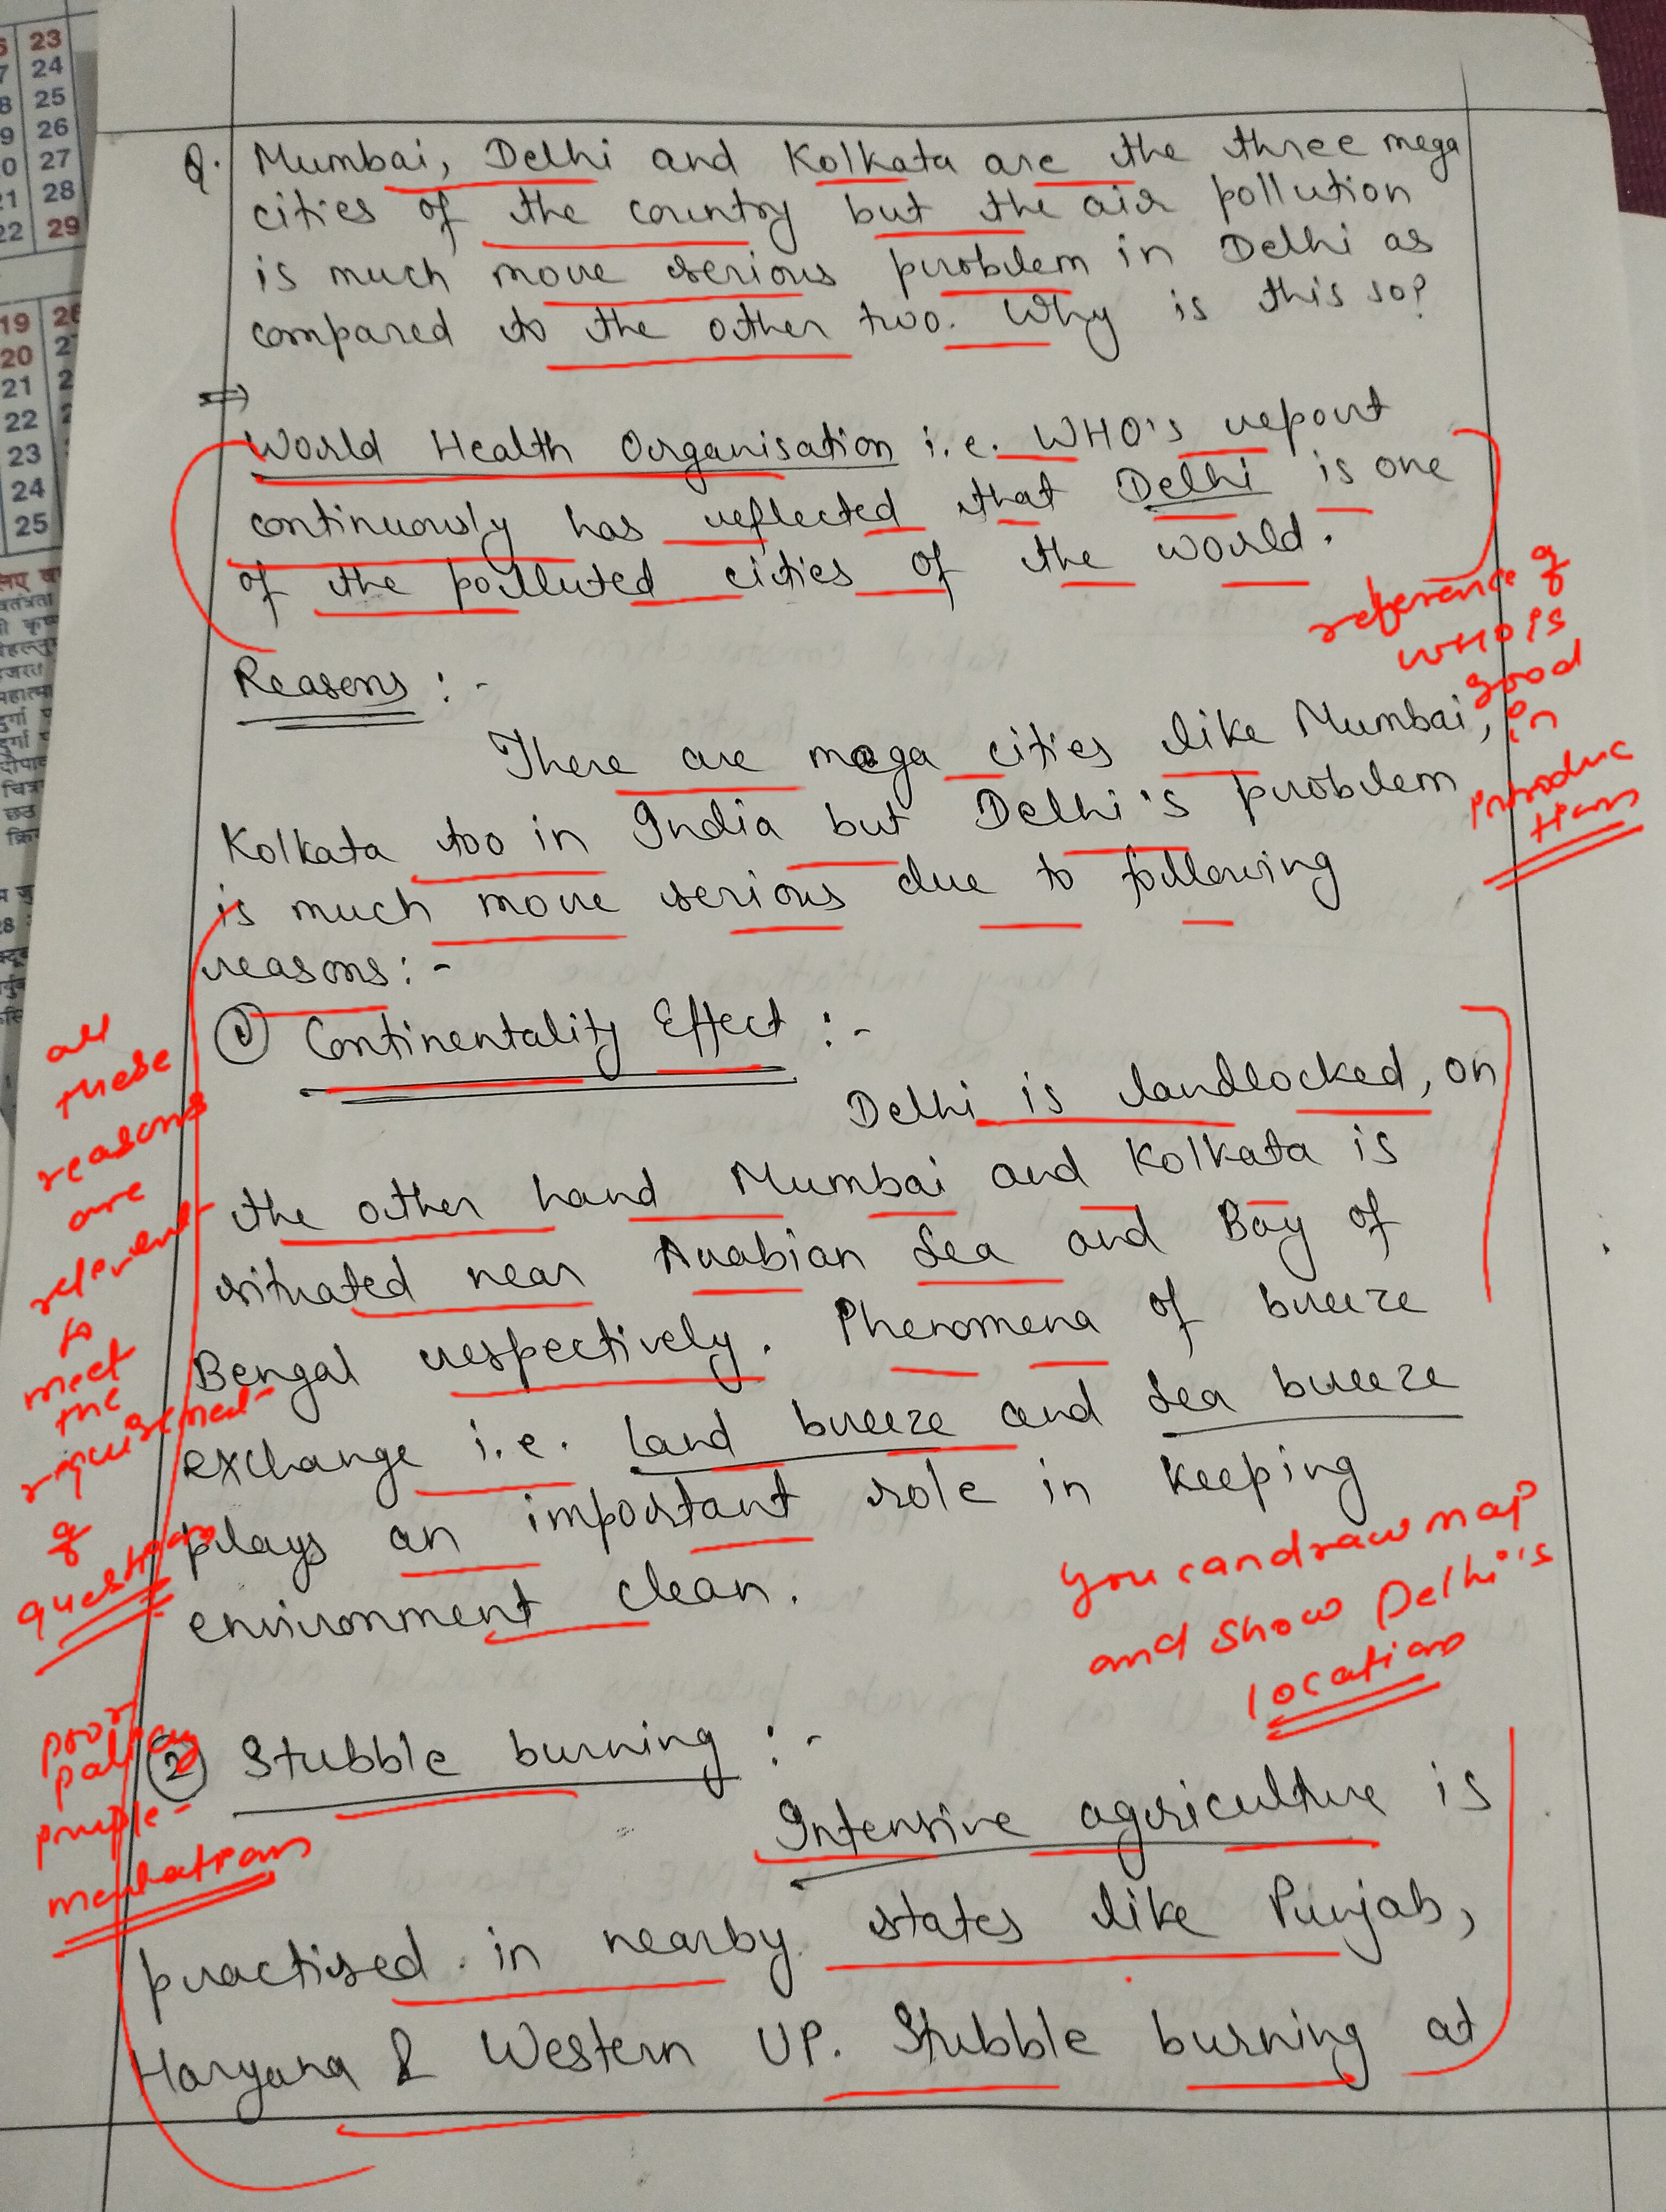 23
24
25
26
27
28
22 29
19
20
21
22
23
24
25
Q. Mumbai, Delhi and Kolkata are the three mega
cities of the country but the air pollution
is much more serious problem in Delhi as
compared to the other two. Why is this so?
⇒
World Health Organisation i.e. WHO's report
continuously has reflected that Delhi is one
of the polluted cities of the world.
reference of
WHO is
good
in
introduc
tion
Reasons :-
There are mega cities like Mumbai,
Kolkata too in India but Delhi's problem
is much more serious due to following
reasons:-
① Continentality Effect :-
Delhi is landlocked, on
the other hand Mumbai and Kolkata is
situated near Arabian Sea and Bay of
Bengal respectively. Phenomena of breeze
exchange i.e. land breeze and sea breeze
plays an important role in keeping
environment clean.
all
these
reasons
are
relevent
to
meet
the
of
question
you can draw map
and show Delhi's
location
② Stubble burning :-
Intensive agriculture is
practised in nearby states like Punjab,
Haryana & Western UP. Stubble burning at
poor